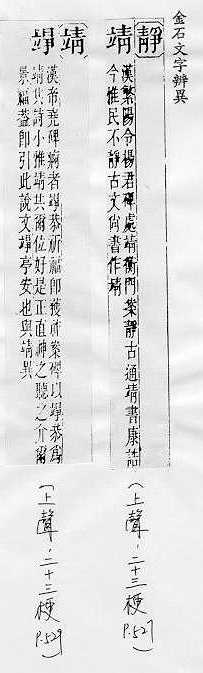 金石文字辨異
靜 靖 漢繁陽令楊君碑處靖衡門案靜古通靖書康誥
今惟民不靜古文尚書作靖
(上聲·二十三梗 P.527)
靖 竫 漢帝堯碑竫恭祈福即獲案碑以竫恭爲
靖共詩小雅靖共爾位好是正直神之聽之介爾
景福蓋即引此說文竫亭安也與靖異
(上聲·二十三梗 P.529)